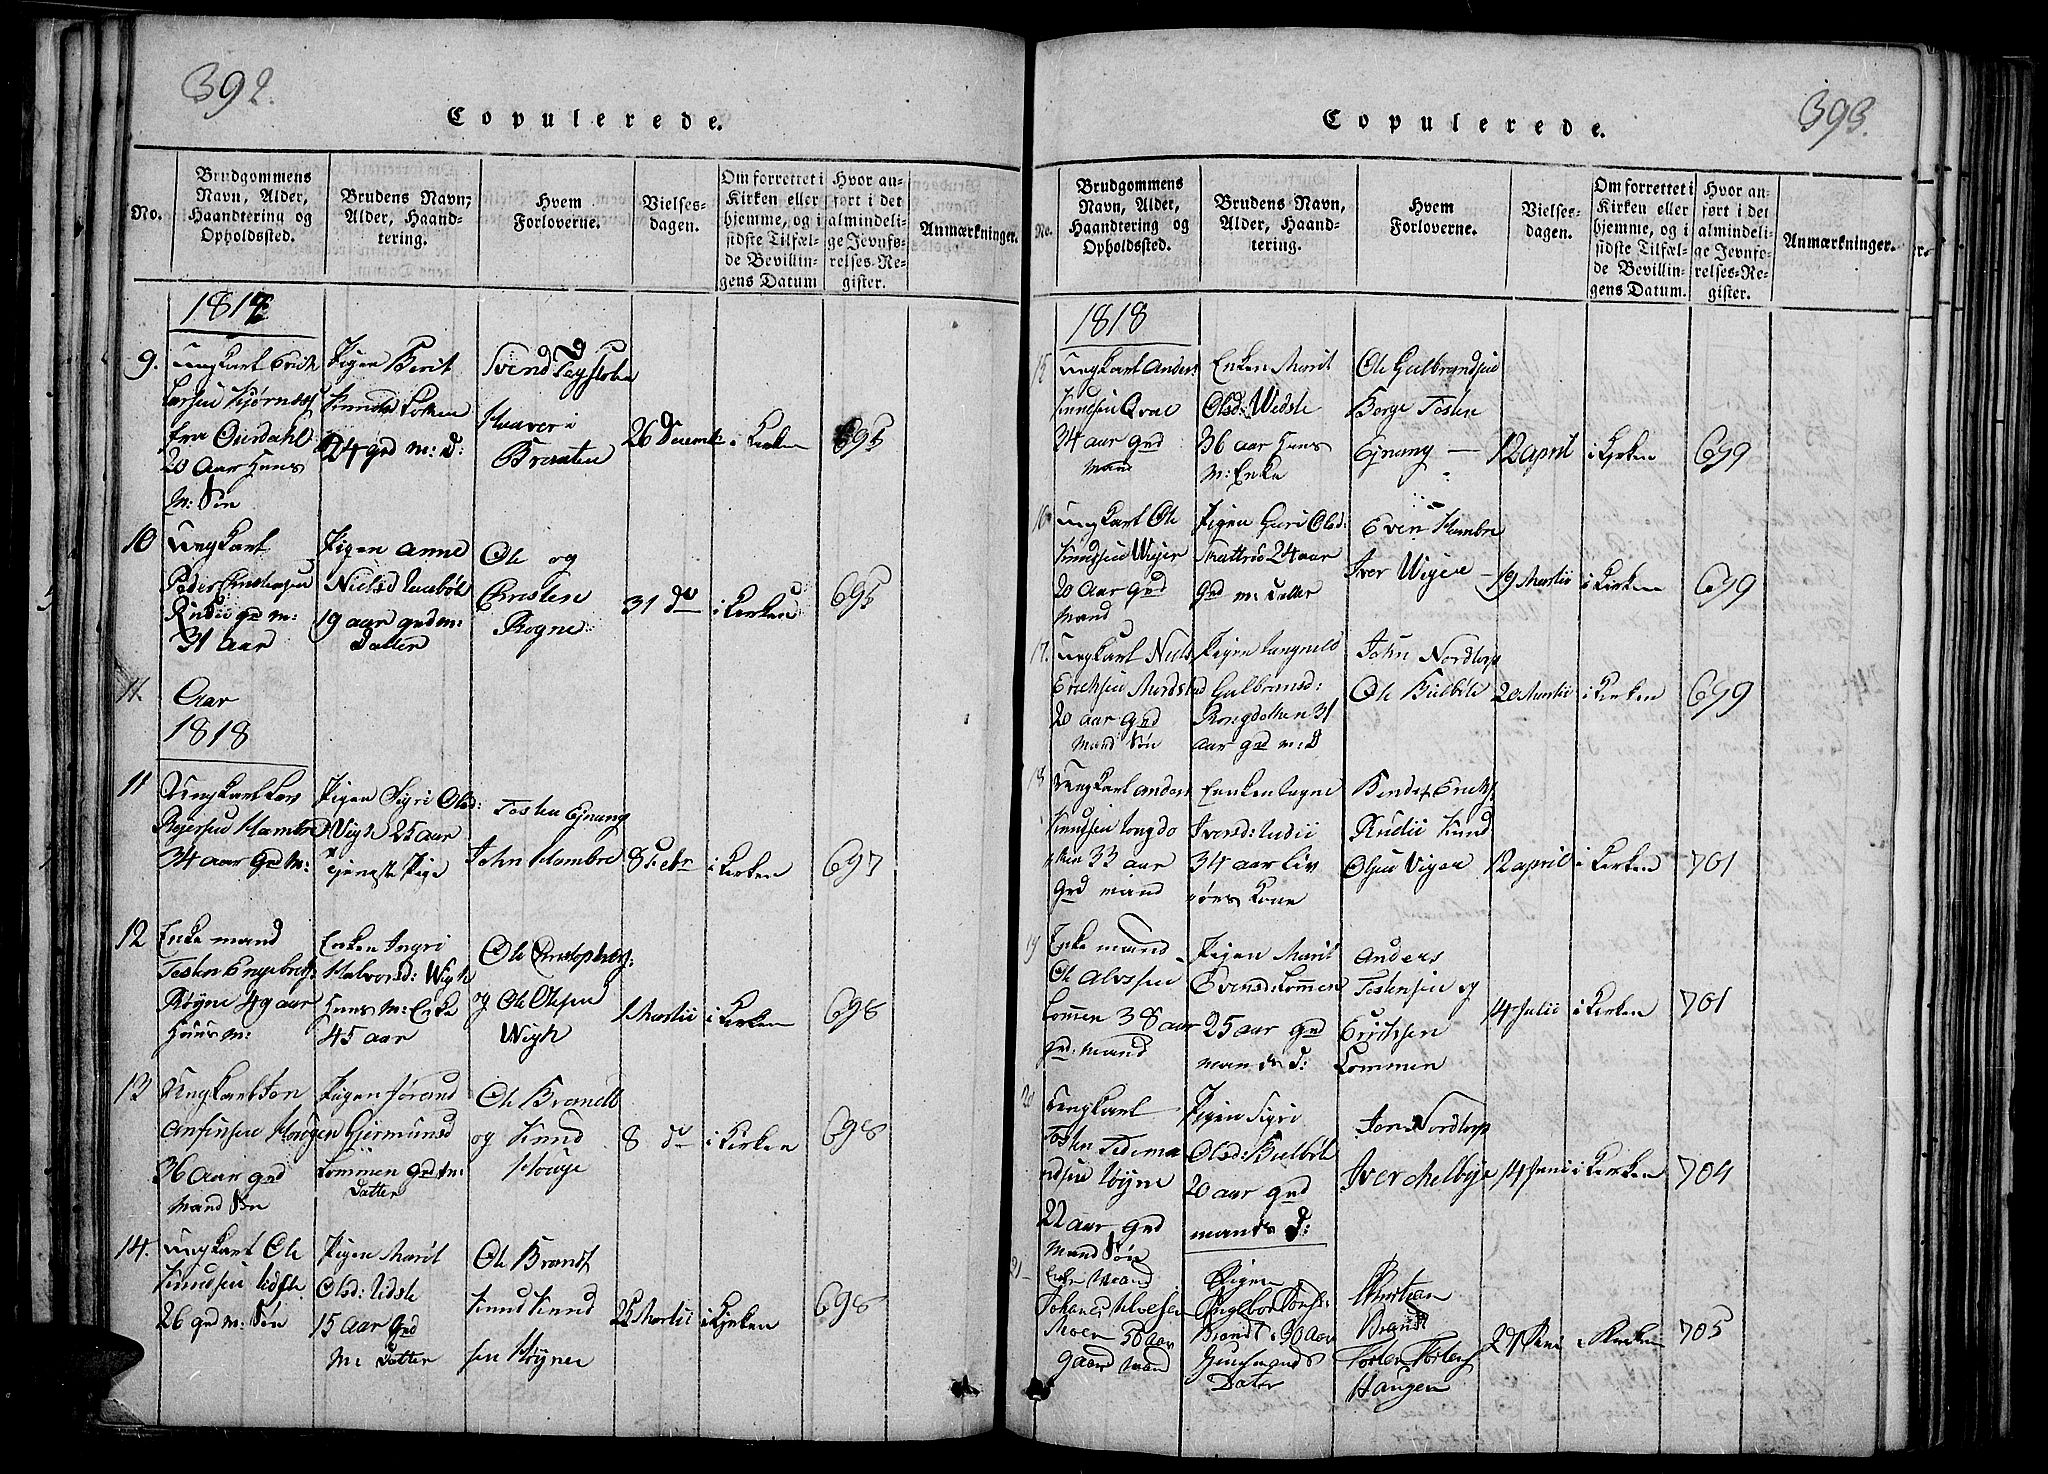 392.
Copulerede.
No.
Brudgommens
Navn, Alder,
Haandtering og
Opholdssted.
Brudens Navn,
Alder, Haand-
tering.
Hvem
Forloverne.
Vielses-
dagen.
Om forrettet i
Kirken eller
hjemme, og i
sidste Tilfæl-
de Bevillin-
gens Datum
Hvor an-
ført i det
almindeli-
ge Jevnfø-
relses-Re-
gister.
Anmærkninger.
1817
9.
Ungkarl Erich
Larsen
fra Ourdahl
20 Aar Huus
M: Søn
Pigen Berit
Knudsd
24 grd m: D:
Svend
Haaver i
Braaten
26 Decemb
i Kirken
695
10
Ungkarl
Peder Christensen
Rudii grd m:
31 aar
Pigen Anne
Nielsd
19 aar grd m:
Datter
Ole og
Christen
Rogne
31 do
i Kirken
695
11.
Aar
1818
11
Ungkarl Lars
Reiersen Hambre
34 aar grd m:
Pigen Sigri Olsd:
Wigh 25 aar
Tjeneste Pige
Tosten Ejnang
John Hambre
8 Febr
i Kirken
697
12
Enke mand
Tosten Engebrets:
Røyne 49 aar
Huus m:
Enken Ingri
Halvorsd: Wigh
Huus m: Enke
45 aar
Ole Christophers:
og Ole Olsen
Wigh
1 Martii
i Kirken
698
13
Ungkarl Jon
Anfinsen Hougen
36 Aar grd
mand Søn
Pigen Jørand
Gjermunsd
Lommen grd m:
Datter
Ole Brandt
og Knud
Houge
8 do
i Kirken
698
14.
Ungkarl Ole
Knudsen Udsle
26 grd m: Søn
Pigen Marit
Olsd: Udsle
15 aar Grd
M: Datter
Ole Brandt
Knud Knud
sen Høyne
25 Martii
i Kirken
698
393.
Copulerede.
No.
Brudgommens
Navn, Alder,
Haandtering og
Opholdssted.
Brudens Navn,
Alder, Haand-
tering.
Hvem
Forloverne.
Vielses-
dagen.
Om forrettet i
Kirken eller
hjemme, og i
sidste Tilfæl-
de Bevillin-
gens Datum.
Hvor an-
ført i det
almindeli-
ge Jevnfø-
relses-Re-
gister.
Anmærkninger.
1818
15
Ungkarl Anders
Knudsen Qvale
34 aar grd
mand
Enken Marit
Olsd: Wedsle
36 aar Huus
M: Enke
Ole Gulbrandsen
Børge Tosten
Ejnang
12 april
i Kirken
699
16
Ungkarl Ole
Knudsen Wiger
20 Aar grd
mand
Pigen Guri Olsd:
24 aar
Grd m: Datter
Even Hambre
Iver Wiger
19 Martii
i Kirken
699
17.
Ungkarl Niels
Erichsen
20 aar grd
mand Søn
Pigen Langneld
Gulbransd:
31
aar grd m: D
John Nordtorp
Ole Bulbøle
20 Martii
i Kirken
699
18
Ungkarl Anders
Knudsen
33 aar
grd mand
Enken
Iversd:
34 aar
Kone
Bendix Erichs:
Rudii Knud
Olsen Viger
12 april
i Kirken
701
19
Enke mand
Ole Alvssen
Lomen 38 aar
grd: mand
Pigen Marit
Svensd: Lommen
25 aar grd
mands D:
Anders
Tostensen og
Erichsen
Lommen
14 Julii
i Kirken
701
20
Ungkarl
Tosten Tidema
ndsen Høyne
22 aar grd
mand Søn
Pigen Sigri
Olsd: Bulbøle
20 aar grd
mands D:
Jon Nordtorp
Iver Melbye
14 Juni
i Kirken
704
21
Enke Mand
Johanes
Moen 50 Aar
gaard Mand
Pigen
Ingebor
Brandt 30 Aar
Datter
Christian
Brandt
Tosten Tostens
Haugen
29
i Kirken
705